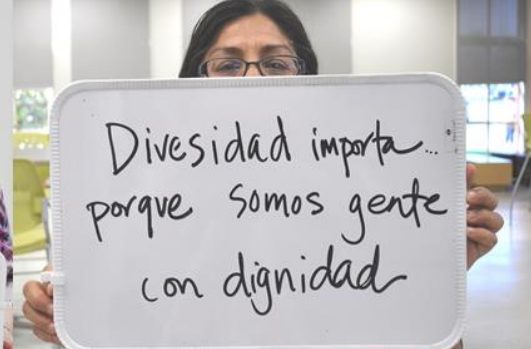 Divesidad importa...
porque somos gente
con dignidad